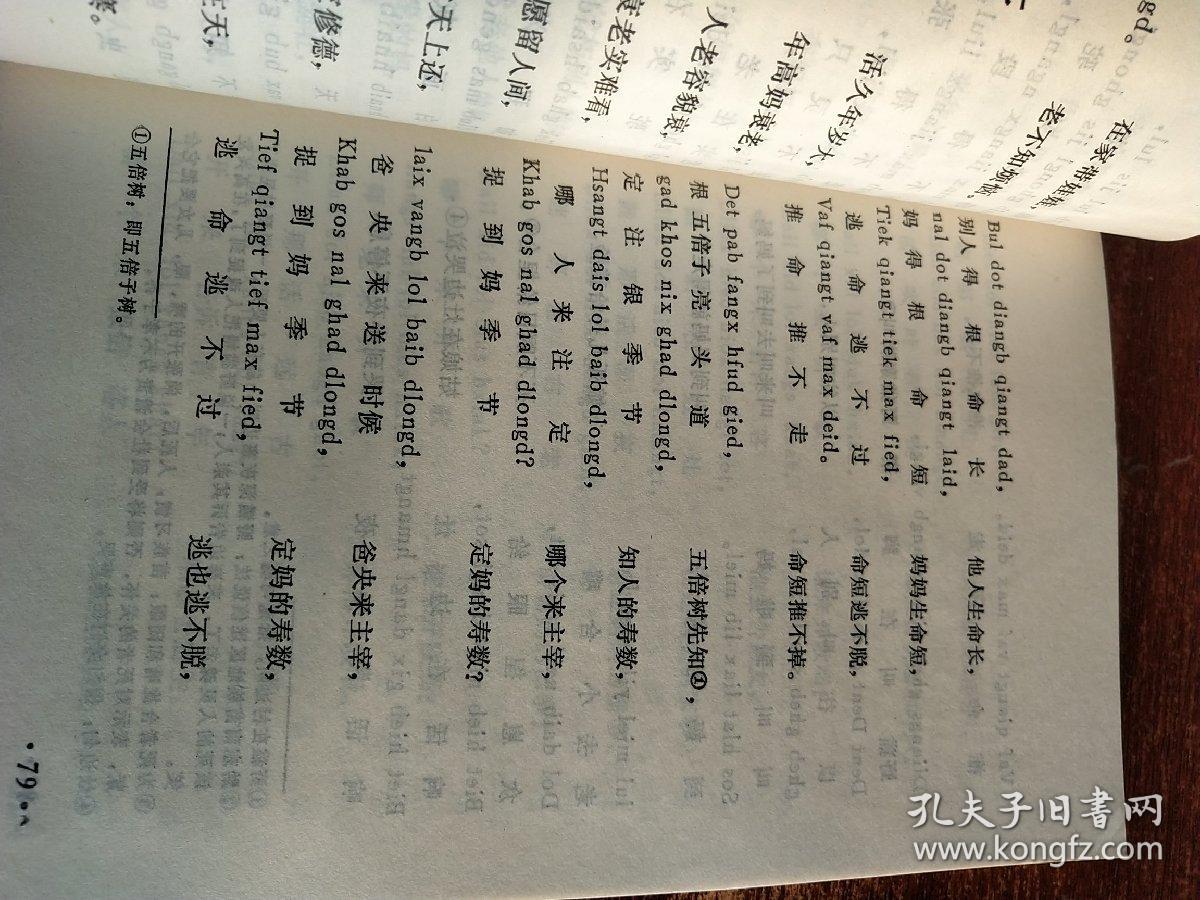 gd。
在家带娃娃，
老不知烦恼。
活久年岁大，
年高妈衰老，
人老容貌衰，
衰老实难看，
愿留人间，
天上还，
修德，
天，
Bul dot diangb qiangt dad,
别人 得 根 命 长 他人生命长，
nal dot diangb qiangt laid,
妈 得 根 命 短 妈妈生命短，
Tiek qiangt tiek max fied,
逃 命 逃 不 过 命短逃不脱，
Vaf qiangt vaf max deid。
推 命 推 不 走 命短推不掉。
Det pab fangx hfud gied,
根 五倍子 亮 头 道 五倍树先知①，
gad khos nix ghad dlongd,
定 注 银 季 节 知人的寿数，
Hsangt dais lol baib dlongd,
哪 人 来 注 定 哪个来主宰，
Khab gos nal ghad dlongd?
捉 到 妈 季 节 定妈的寿数？
laix vangb lol baib dlongd,
爸 央 来 送 时候 爸央来主宰，
Khab gos nal ghad dlongd,
捉 到 妈 季 节 定妈的寿数，
Tief qiangt tief max fied,
逃 命 逃 不 过 逃也逃不脱，
①五倍树，即五倍子树。
79
孔夫子旧书网
www.kongfz.com